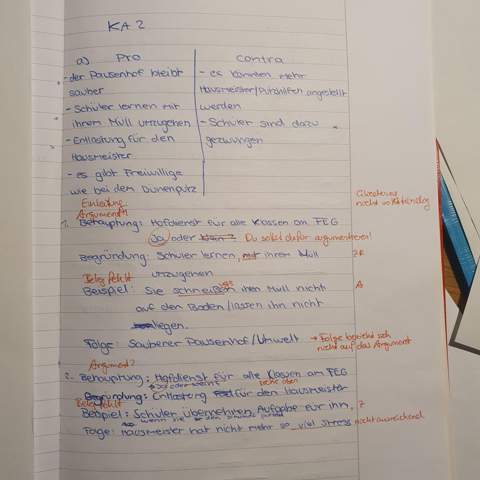 KA 2
a) Pro
contra
- der Pausenhof bleibt
sauber
- Schüler lernen mit
ihrem Müll umzugehen
- Entlastung für den
Hausmeister
- es gibt Freiwillige
wie bei dem Dünenputz
- es könnten mehr
Hausmeister/Putzhilfen angestellt
werden
- Schüler sind dazu
gezwungen
Einleitung
Argument
1. Behauptung: Hofdienst für alle Klassen am FEG
Ja oder Du sollst dafür argumentieren!
Begründung: Schüler lernen, mit ihrem Müll
umzugehen
Beleg fehlt
Beispiel: Sie schmeißen ihren Müll nicht
auf den Boden/lassen ihn nicht
liegen.
Folge: Sauberer Pausenhof/Umwelt
→ Folge bezieht sich
nicht auf das Argument
Argument?
2. Behauptung: Hofdienst für alle Klassen am FEG
siehe oben
Begründung: Entlastung für den Hausmeister
Beleg fehlt
Beispiel: Schüler übernehmen Aufgabe für ihn,
wenn sie
Folge: Hausmeister hat nicht mehr so viel Stress
nicht ausreichend